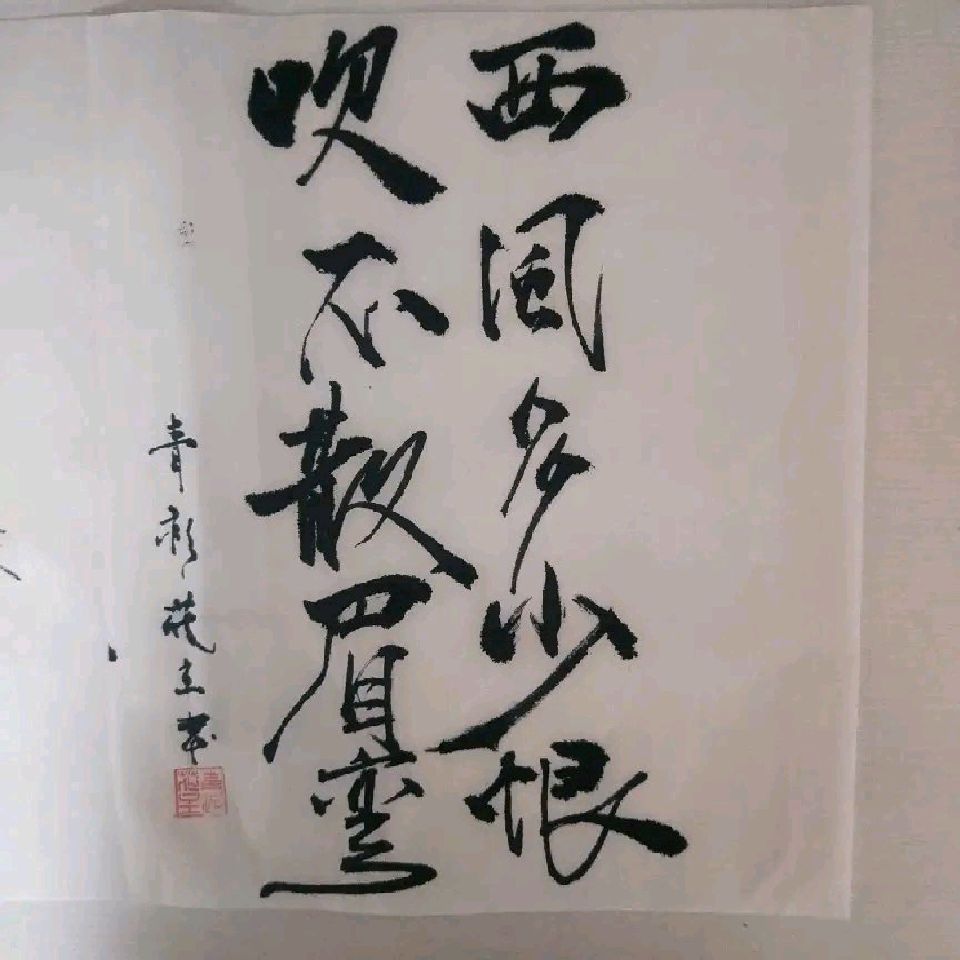 西风多少恨
吹不散眉弯
青彩花主书